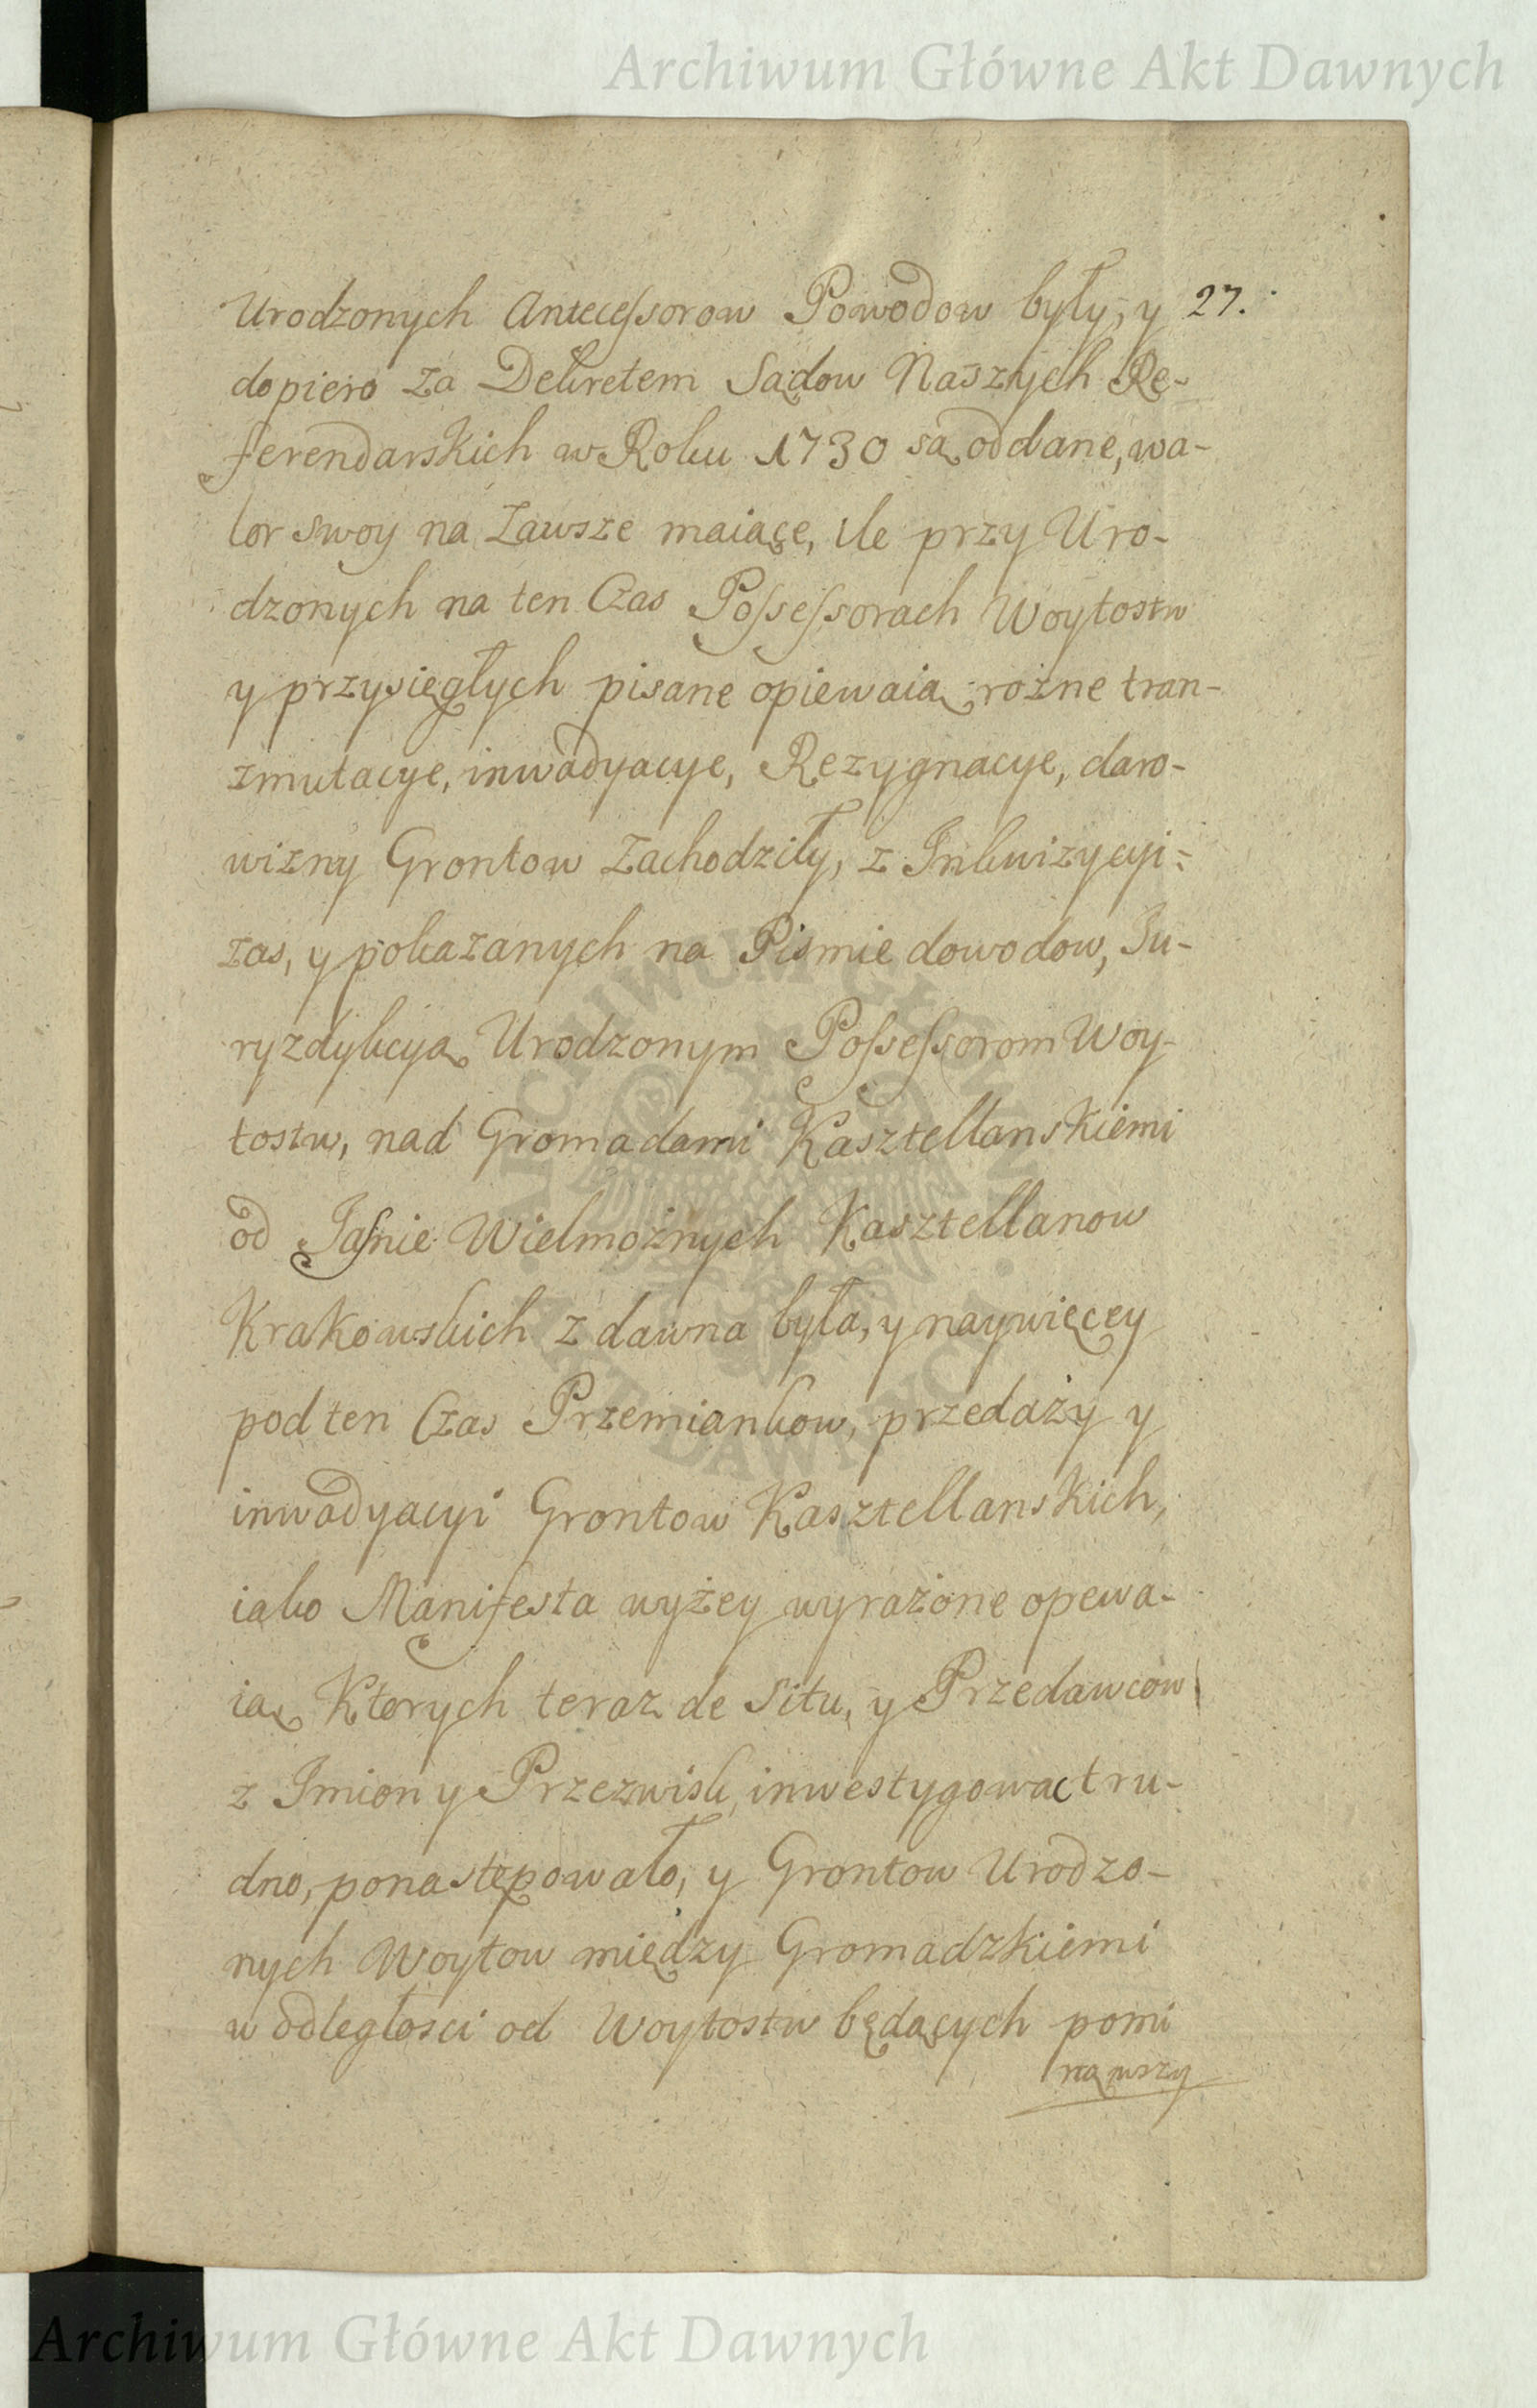 Archiwum Główne Akt Dawnych
Urodzonych Antecessorow Powodow były, y 27.
dopiero za Dekretem Sądow Naszych Re-
ferendarskich w Roku 1730 są oddane, wa-
lor swoy na zawsze maiące, ile przy Uro-
dzonych na ten Czas Possessorach Woytostw
y przysięgłych pisane opiewaią rożne tran-
zmutacye, inwadyacye, Rezygnacye, daro-
wizny Grontow zachodziły, z Inkwizycyi
zas, y pokazanych na Pismie dowodow, Ju-
ryzdykcya Urodzonym Possessorom Woy-
tostw, nad Gromadami Kasztellanskiemi
od Jasnie Wielmożnych Kasztellanow
Krakowskich z dawna była, y naywięcey
pod ten Czas Przemiankow, przedaży y
inwadyacyi Grontow Kasztellanskich,
iako Manifesta wyżey wyrażone opewa-
ią Ktorych teraz de Situ, y Przedawcow
z Imion y Przezwisk, inwestygowac tru-
dno, ponastępowało, y Grontow Urodzo-
nych Woytow między Gromadzkiemi
w odległosci od Woytostw będących pomi
nąwszy
ARCHIWUM GŁÓWNE
AKT DAWNYCH
Archiwum Główne Akt Dawnych